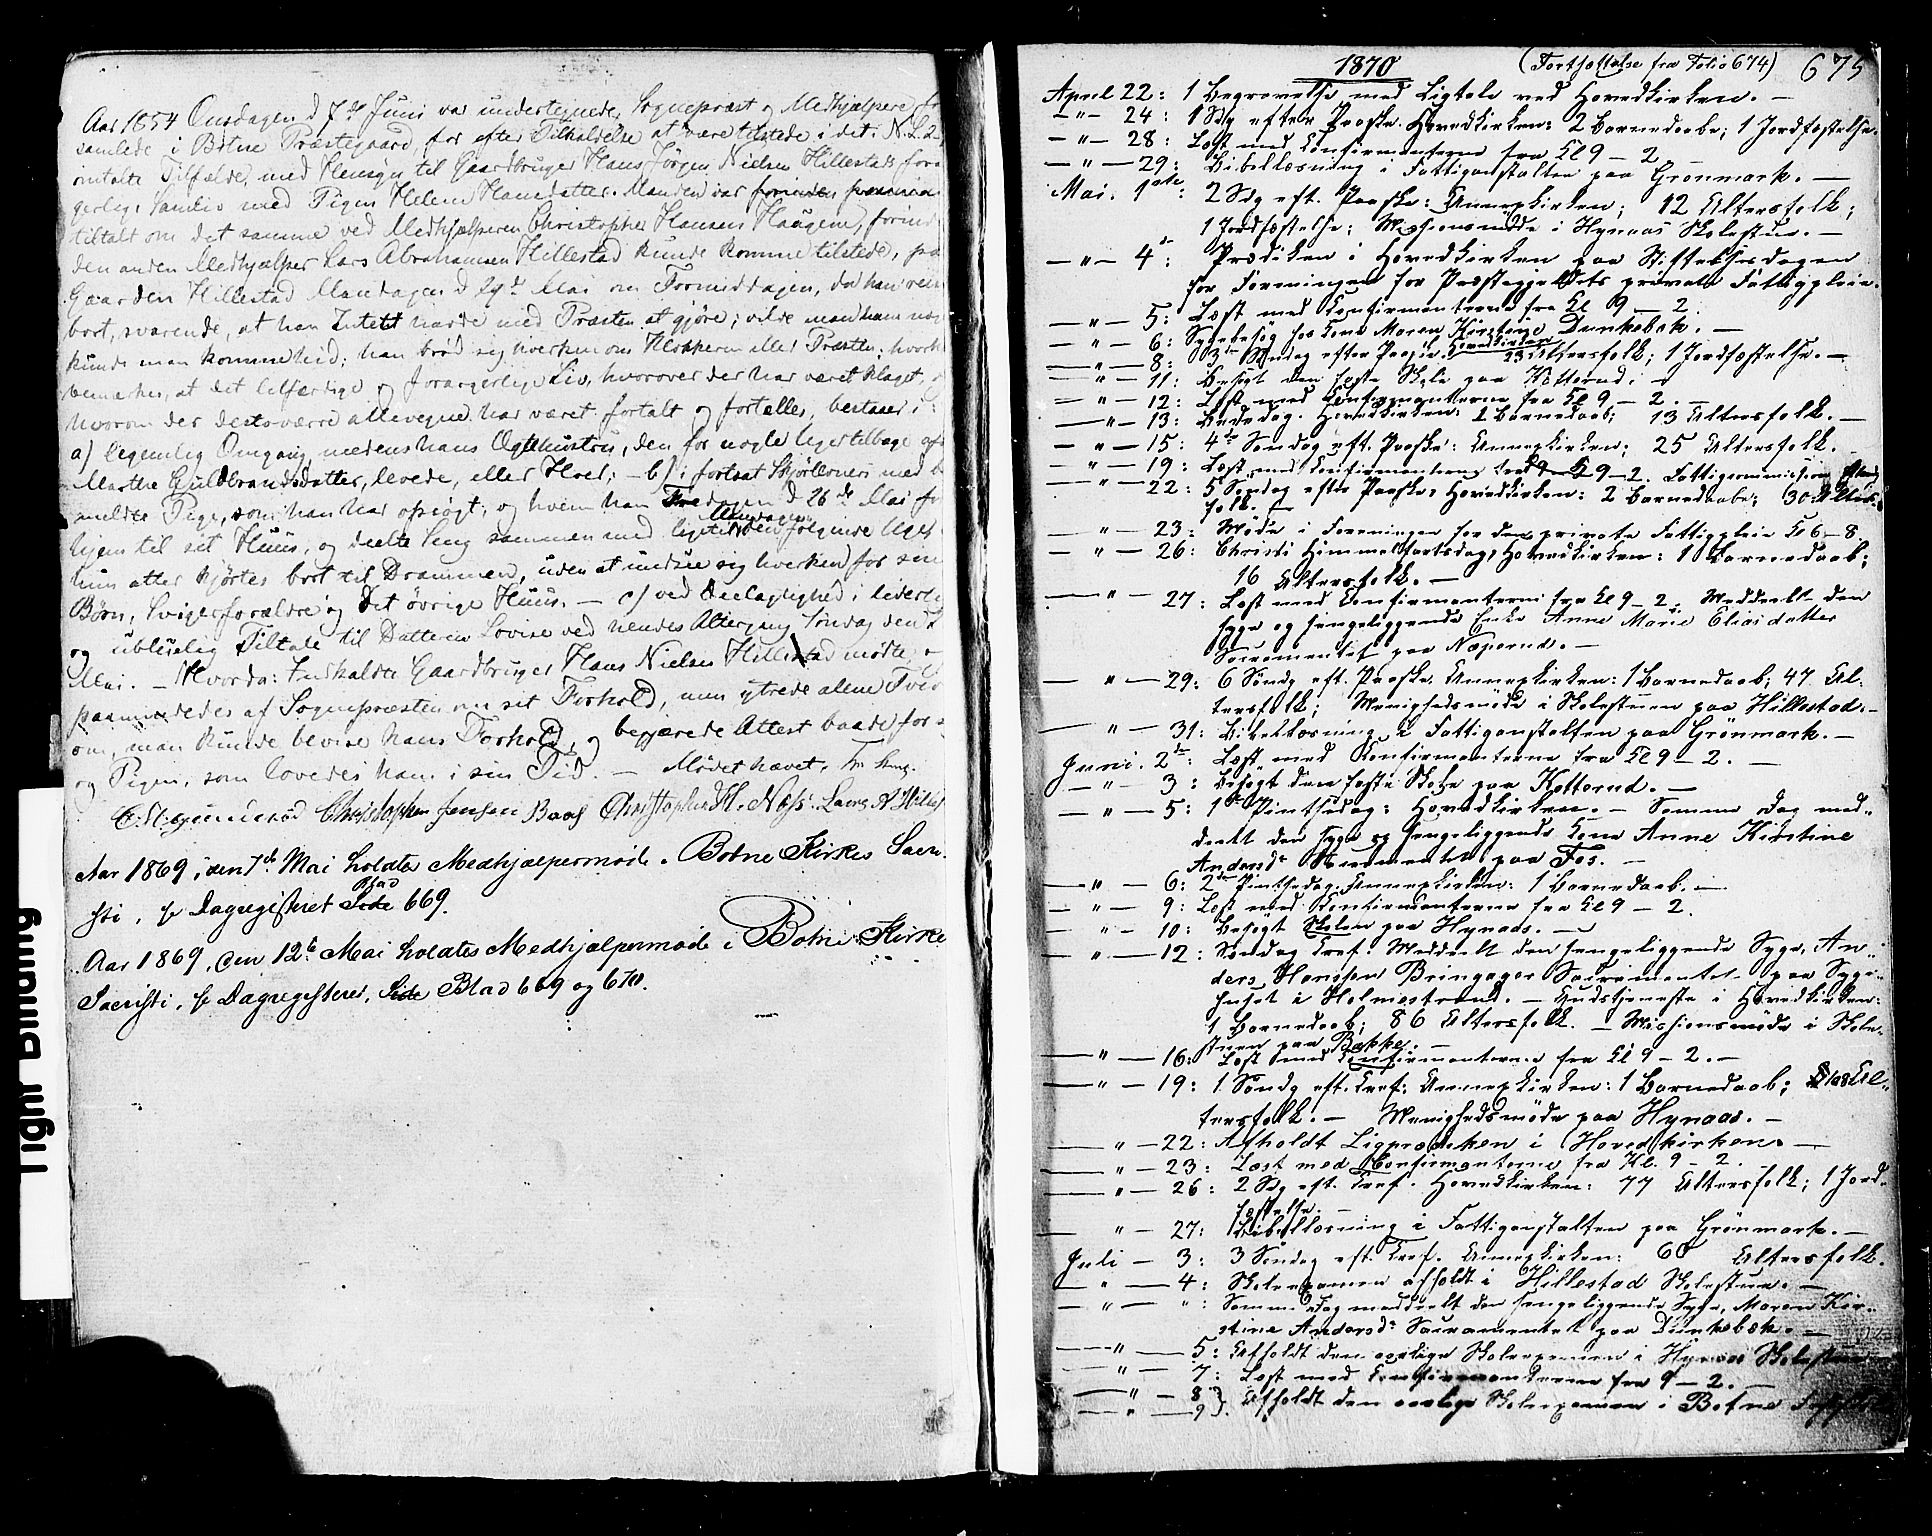 Aar 1854 Onsdagen d 7de Juni var undertegnede Sognepræst og Medhjælpere
samlede i Botne Præstegaard, for efter Tilkaldelse at være tilstede i det i N. L. 2
omtalte Tilfælde, med Hensyn til Gaardbruger Hans Jørgen Nielsen Hillestads
gerlige Samliv med Pigen Helene Hansdatter. Manden var
tiltalt om det samme ved Medhjælperen Christopher Hansen Haugene,
den anden Medhjælper Lars Abrahamsen Hillestad kunde komme tilstede, paa
Gaarden Hillestad Mandagen d 29de Mai om Formiddagen, da han
bort, svarende, at han Intet havde med Præsten at gjøre; vilde man ham noget
kunde man komme hid; han brød sig hverken om Klokkeren eller Præsten;
bemærkes, at det letfærdige og forargerlige Liv, hvorover der har været klaget,
hvorom der desto værre allevegne har været fortalt og fortælles, bestaaer i:
a) legemlig Omgang, medens hans Ægtehustru, den for nogle Uger tilbage
Marthe Guldbrandsdatter, levede, eller Hoer; – b) i fortsat Skjørlevnet med
meldte Pige, som han har opsøgt, og hvem han Fredagen d 26de Mai
hjem til sit Huus, og deelte Seng sammen med ligetil Mandagen
hun atter kjørtes bort til Drammen, uden at undsee sig hverken for sin
Børn, Svigerforældre og det øvrige Huus. – c) ved Deelagtighed i
og ublue­lig Tiltale til Datteren Lovise ved hendes Altergang Søndag den
Mai. – Hvorda: Indkaldte Gaardbruger Hans Nielsen Hillestad mødte
paamindedes af Sognepræsten om sit Forhold, men ytrede alene Tvivl
om, man kunde bevise hans Forhold, og begjærede Attest baade for
og Pigen, som lovedes ham i sin Tid. – Mødet hævet.
Christopher Jensen Christopher H. Lars A. Hillest
Aar 1869, den 7de Mai holdtes Medhjælpermøde i Botne Kirkes Sacri-
sti, se Dagregistret Side Blad 669.
Aar 1869, den 12te Mai holdtes Medhjælpermøde i Botne Kirke
Sacristi, se Dagregisteret, Side Blad 669 og 670.
1870 (Fortsættelse fra Folio 674) 675
April 22: 1 Begravelse med Ligtale ved Hovedkirken. –
– " – 24: 1 Sdg efter Paaske. Hovedkirken: 2 Barnedaab; 1 Jordfæstelse.
– " – 28: Læst med Confirmanterne fra Kl 9 – 2.
– " – 29: Bibellæsning i Fattiganstalten paa Grønmark. –
Mai. 1ste: 2 Sdg eft. Paaske: Annexkirken; 12 Altersfolk;
1 Jordfæstelse; Missionsmøde i Hynaas Skolestue. –
– " – 4de: Prædiken i Hovedkirken paa Stiftelsesdagen
for Foreningen for Præstegjeldets private Fattigpleie.
– " – 5: Læst med Confirmanterne fra Kl 9 – 2.
– " – 6: Sygebesøg hos Kone Maren Kirstine Dunkebæk. –
– " – 8: 3die Søndag efter Paaske. Hovedkirken 23 Altersfolk; 1 Jordfæstelse. –
– " – 11: Besøgt den faste Skole paa Kotterud. –
– " – 12: Læst med Confirmanterne fra Kl 9 – 2. –
– " – 13: Bededag. Hovedkirken: 1 Barnedaab; 13 Altersfolk. –
– " – 15: 4de Søndag eft. Paaske: Annexkirken; 25 Altersfolk.
– " – 19: Læst med Confirmanterne fra Kl 9 – 2. Fattigcommission
– " – 22: 5 Søndag efter Paaske: Hovedkirken: 2 Barnedaab; 30 Alters-
folk. –
– " – 23: Møde i Foreningen for den private Fattigpleie Kl 6 – 8.
– " – 26: Christi Himmelfartsdag, Hovedkirken: 1 Barnedaab;
16 Altersfolk. –
– " – 27: Læst med Confirmanterne fra Kl 9 – 2. Meddeelt den
syge og sengeliggende Enke Anne Marie Eliasdatter
Sacramentet paa Næperud. –
– " – 29: 6 Søndg eft. Paaske. Annexkirken: 1 Barnedaab; 47 Al-
tersfolk; Menighedsmøde i Skolestuen paa Hillestad. –
– " – 31: Bibellæsning i Fattiganstalten paa Grønmark. –
Juni. 2den: Læst med Confirmanterne fra Kl 9 – 2. –
– " – 3: Besøgt den faste Skole paa Kotterud. –
– " – 5: 1ste Pintsedag: Hovedkirken. – Samme Dag med-
deelt den syge og sengeliggende Kone Anne Kirstine
Andersdr Sacramentet paa Fos. –
– " – 6: 2den Pintsedag. Annexkirken: 1 Barnedaab. –
– " – 9: Læst med Confirmanterne fra Kl 9 – 2.
– " – 10: Besøgt Skolen paa Hynaas. –
– " – 12: Søndag Tref. Meddeelt den sengeliggende Syge, An-
ders Hanssen Bringager Sacramentet paa Syge-
huset i Holmestrand. – Gudstjeneste i Hovedkirken:
1 Barnedaab; 86 Altersfolk. – Missionsmøde i Skole-
stuen paa Bakke. –
– " – 16: Læst med Confirmanterne fra Kl 9 – 2. –
– " – 19: 1 Søndg eft. Tref: Annexkirken: 1 Barnedaab; 108 Al-
tersfolk. – Menighedsmøde paa Hynaas. –
– " – 22: Afholdt Ligprædiken i Hovedkirken. –
– " – 23: Læst med Confirmanterne fra Kl. 9 – 2.
– " – 26: 2 Sdg eft. Tref. Hovedkirken: 77 Altersfolk; 1 Jord-
fæstelse. –
– " – 27: Bibellæsning i Fattiganstalten paa Grønmark. –
Juli – 3: 3 Søndag eft. Tref. Annexkirken: 60 Altersfolk.
– " – 4: Skoleexamen afholdt i Hillestad Skolestue. –
– " – ": Samme Dag meddeelt den sengeliggende Syge, Maren Kir-
stine Andersdr Sacramentet paa Dunkebæk. –
– " – 5: Afholdt den aarlige Skoleexamen i Hynaas Skolestue
– " – 7: Læst med Confirmanterne fra 9 – 2. –
– " – 8
– " – 9 }: Afholdt den aarlige Skoleexamen i Botne
Tight Binding